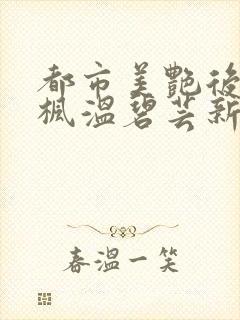 都市美艷後
楓溫碧芸新
春溫一笑